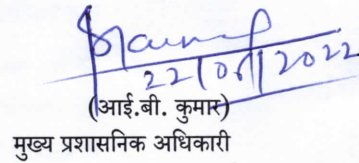 22/06/2022
(आई.बी. कुमार)
मुख्य प्रशासनिक अधिकारी